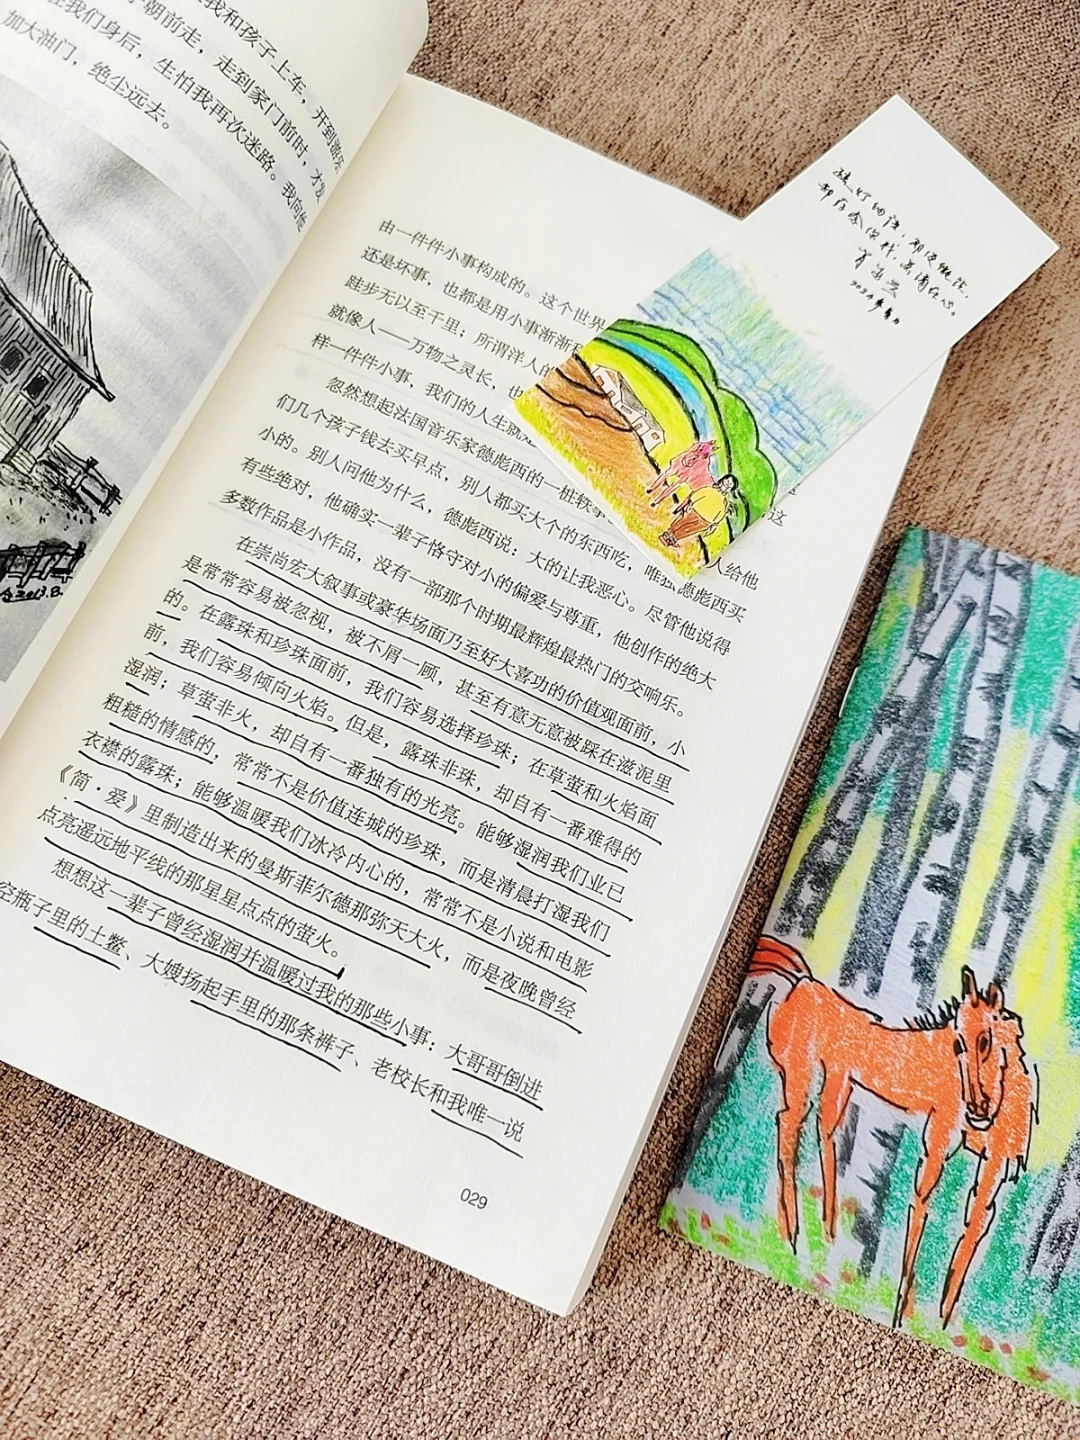 我和孩子上车，开到游乐
朝前走，走到家门前时，才发
在我们身后，生怕我再次迷路。我向他
加大油门，绝尘远去。
由一件件小事构成的。这个世界
还是坏事，也都是用小事渐渐
跬步无以至千里；所谓洋人的
就像人——万物之灵长，也
样一件件小事，我们的人生就
这
忽然想起法国音乐家德彪西的一桩轶
人给他
们几个孩子钱去买早点，别人都买大个的东西吃，唯独德彪西买
小的。别人问他为什么，德彪西说：大的让我恶心。尽管他说得
有些绝对，他确实一辈子恪守对小的偏爱与尊重，他创作的绝大
多数作品是小作品，没有一部那个时期最辉煌最热门的交响乐。
在崇尚宏大叙事或豪华场面乃至好大喜功的价值观面前，小
是常常容易被忽视，被不屑一顾，甚至有意无意被踩在滋泥里
的。在露珠和珍珠面前，我们容易选择珍珠；在草萤和火焰面
前，我们容易倾向火焰。但是，露珠非珠，却自有一番难得的
湿润；草萤非火，却自有一番独有的光亮。能够湿润我们业已
粗糙的情感的，常常不是价值连城的珍珠，而是清晨打湿我们
衣襟的露珠；能够温暖我们冰冷内心的，常常不是小说和电影
《简·爱》里制造出来的曼斯菲尔德那弥天大火，而是夜晚曾经
点亮遥远地平线的那星星点点的萤火。
想想这一辈子曾经湿润并温暖过我的那些小事：大哥哥倒进
空瓶子里的土鳖、大嫂扬起手里的那条裤子、老校长和我唯一说
029